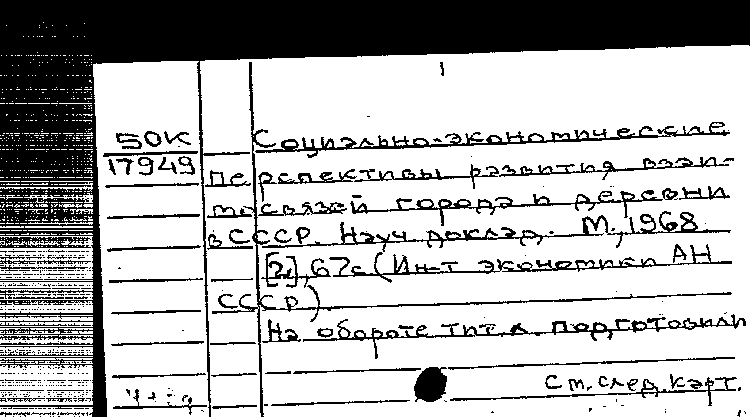 50К
17949
Социально-экономические
перспективы развития взаи-
мосвязей города и деревни
в СССР. Науч. доклад. М., 1968.
[2], 67с (Ин-т экономики АН
СССР).
На обороте тит. л. подготовили
См. след. карт.